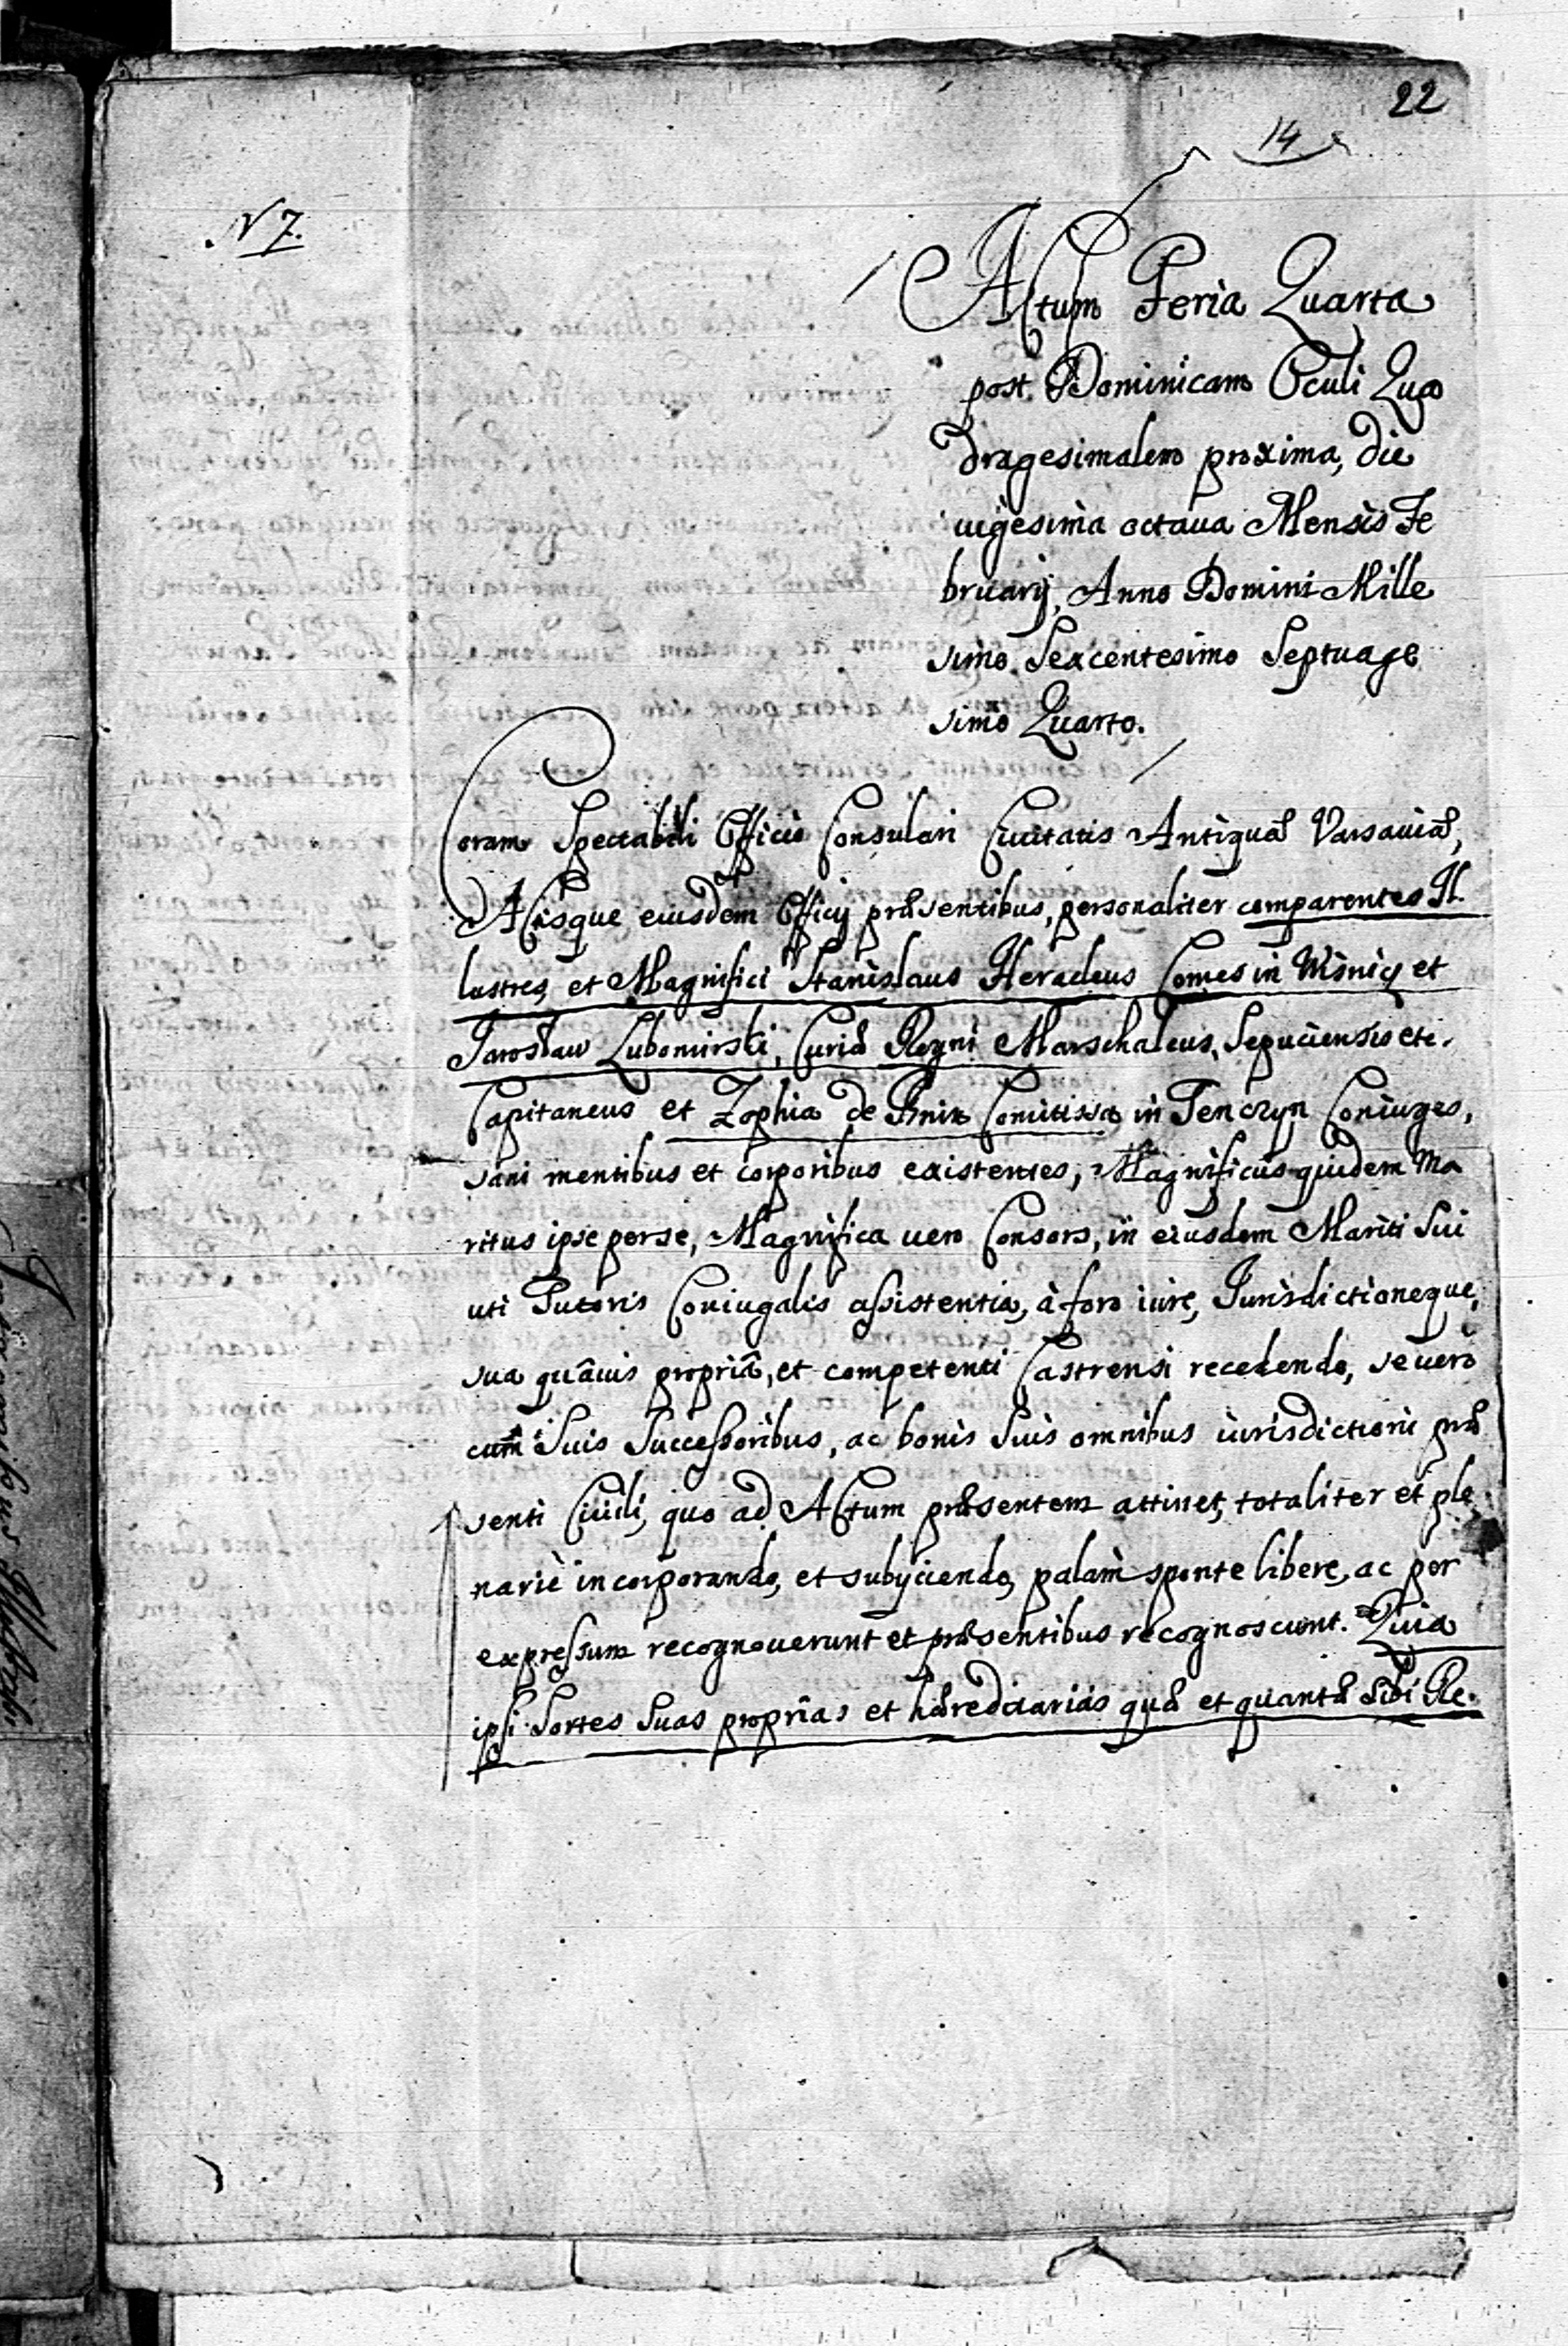 22
14
N 7.
Actum Feria Quarta
post Dominicam Oculi Qua
dragesimalem proxima, die
uigesima octaua Mensis Fe
bruarij, Anno Domini Mille
simo Sexcentesimo Septuage
simo Quarto.
Coram Spectabili Officio Consulari Ciuitatis Antiquæ Varsauiæ,
Actisque eiusdem Officij præsentibus, personaliter comparentes Il.
lustres et Magnifici Stanislaus Heracleus Comes in Wisnicz et
Jarosław Lubomirski, Curiæ Regni Marschalcus, Sepuciensis etc.
Capitaneus et Zophia de Bnin Comitissa in Tenczyn Coniuges,
sani mentibus et corporibus existentes, Magnificus quidem Ma
ritus ipse per se, Magnifica uero Consors, in eiusdem Mariti Sui
uti Tutoris Coniugalis assistentia, à foro iure, Jurisdictioneque,
sua quâuis propriâ, et competenti Castrensi recedendo, se uerò
cum Suis Successoribus, ac bonis Suis omnibus iurisdictioni præ
senti Ciuili, quo ad Actum præsentem attinet, totaliter et ple
nariè incorporando, et subijciendo, palàm sponte libere, ac per
expressum recognouerunt et præsentibus recognoscunt. Quia
ipsi Sortes Suas proprias et hæreditarias quæ et quantæ Sibi Re.